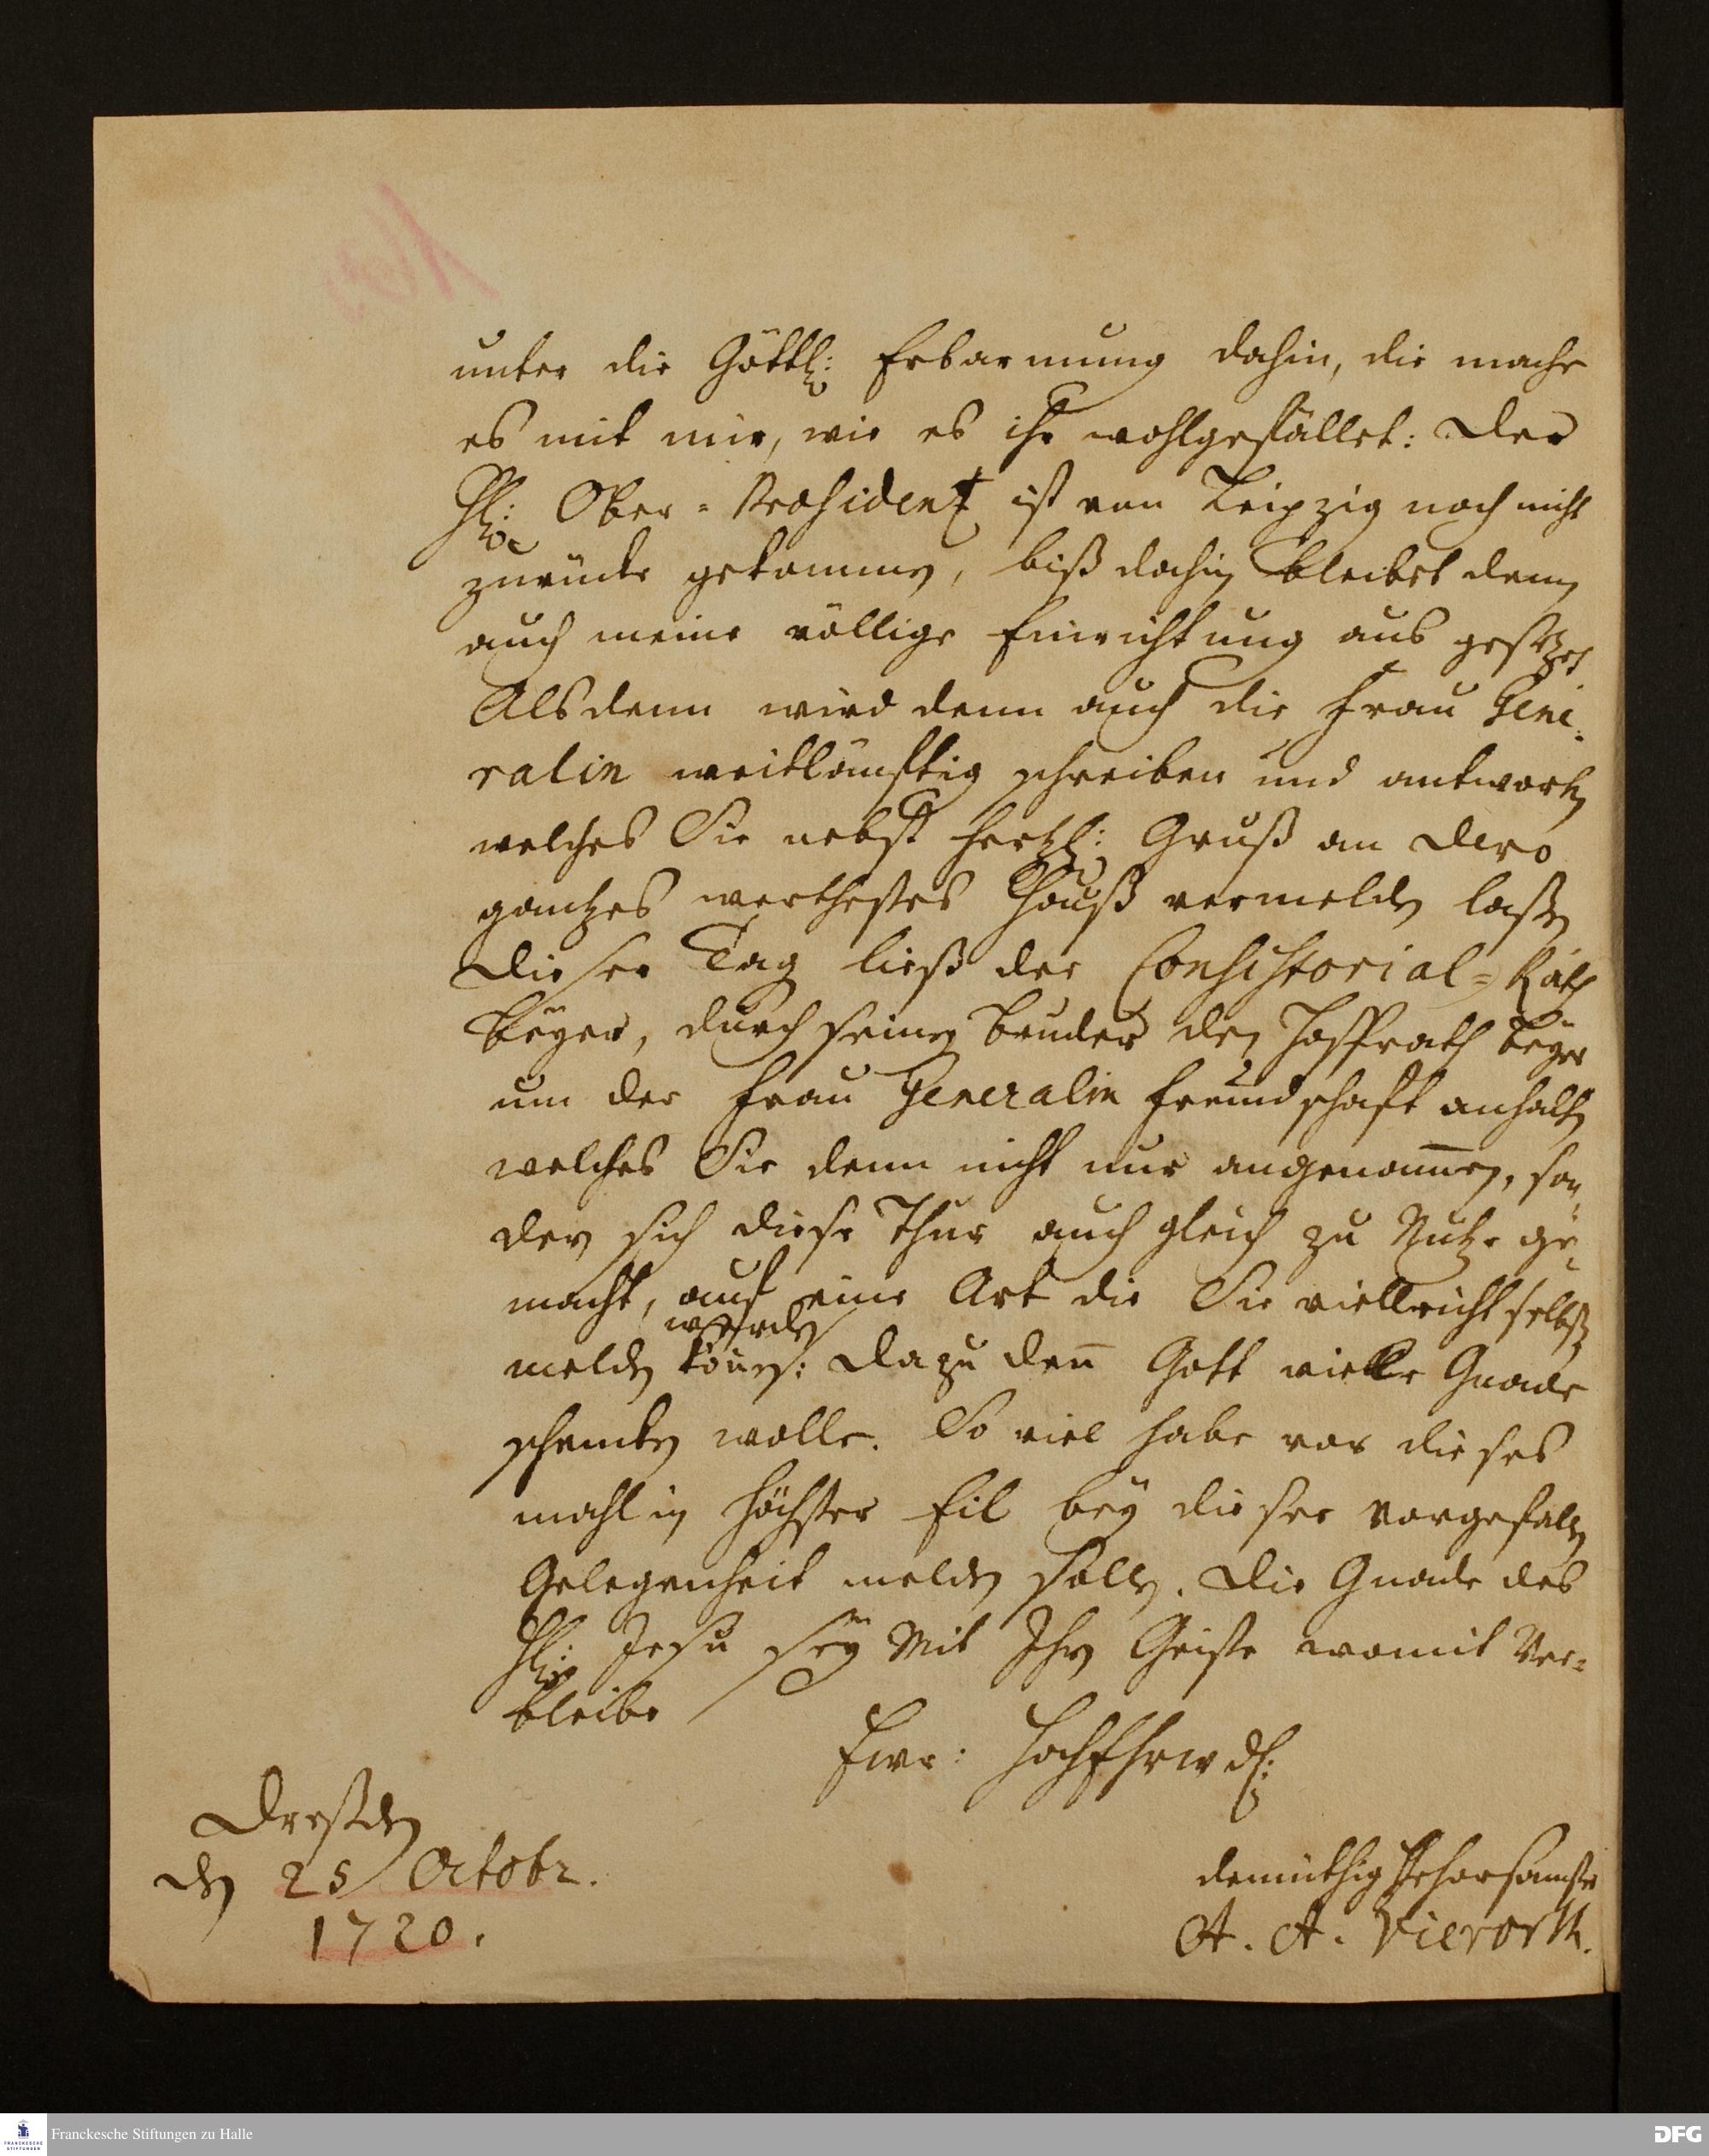 unter die Göttl: Erbarmung dahin, die mache
es mit mir, wie es ihr wohlgefället: Der
H: Ober-Præsident ist von Leipzig noch nicht
zurücke gekommen, biß dahin bleibet denn
auch meine völlige Einrichtung aus gesetzet
Alsdenn wird denn auch die Frau Gene-
ralin weitläuftig schreiben und antworten
welches Sie nebst hertzl: Gruß an Dero
gantzes werthestes Hauß vermelden laßen
Dieser Tag ließ der Consistorial=Rath
Beyer, durch seinen Bruder den Hoffrath Beyer
um der Frau Generalin Freundschaft anhalten
welches Sie denn nicht nur angenommen, son-
dern sich diese Thür auch gleich zu Nutze ge-
macht, auf eine Art die Sie vielleicht selbst
werden
melden können: Dazu denn Gott vielle Gnade
schencken wolle. So viel habe vor dieses
mahl in höchster Eil bey dieser vorgefallen
Gelegenheit melden sollen. Die Gnade des
H: Jesu sey Mit Ihren Geiste womit Ver-
bleibe
Ewr: HochEhrwd:
Dreßden
den 25 Octobr.
1720.
demüthig Gehorsamster
A. A. Vierorth.
Franckesche Stiftungen zu Halle
DFG